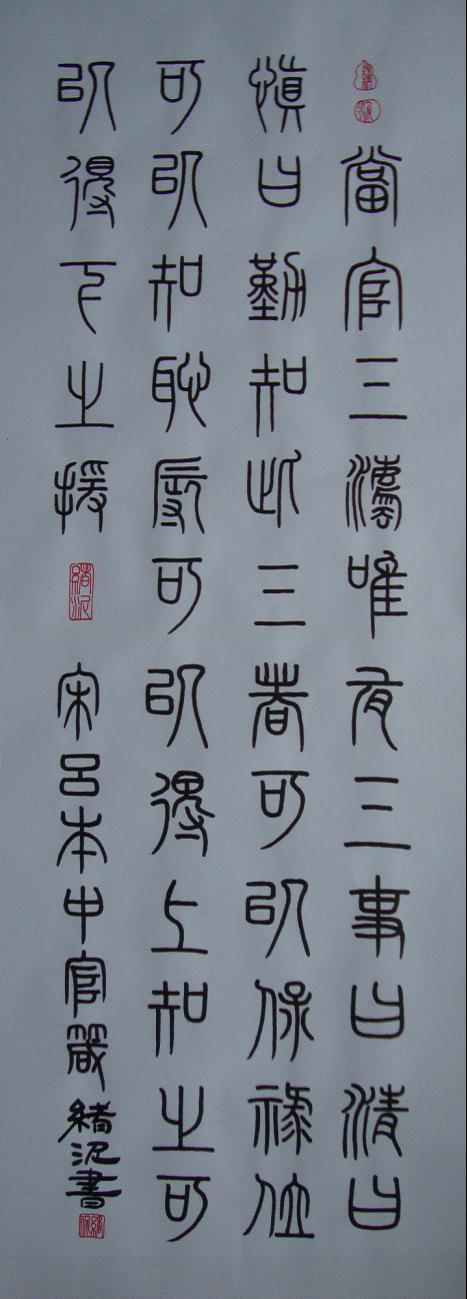 當官三灋唯有三事曰清曰
慎曰勤知此三者可以保祿位
可以知恥辱可以得上知之可
以得下之援
宋呂本中官箴
緒書